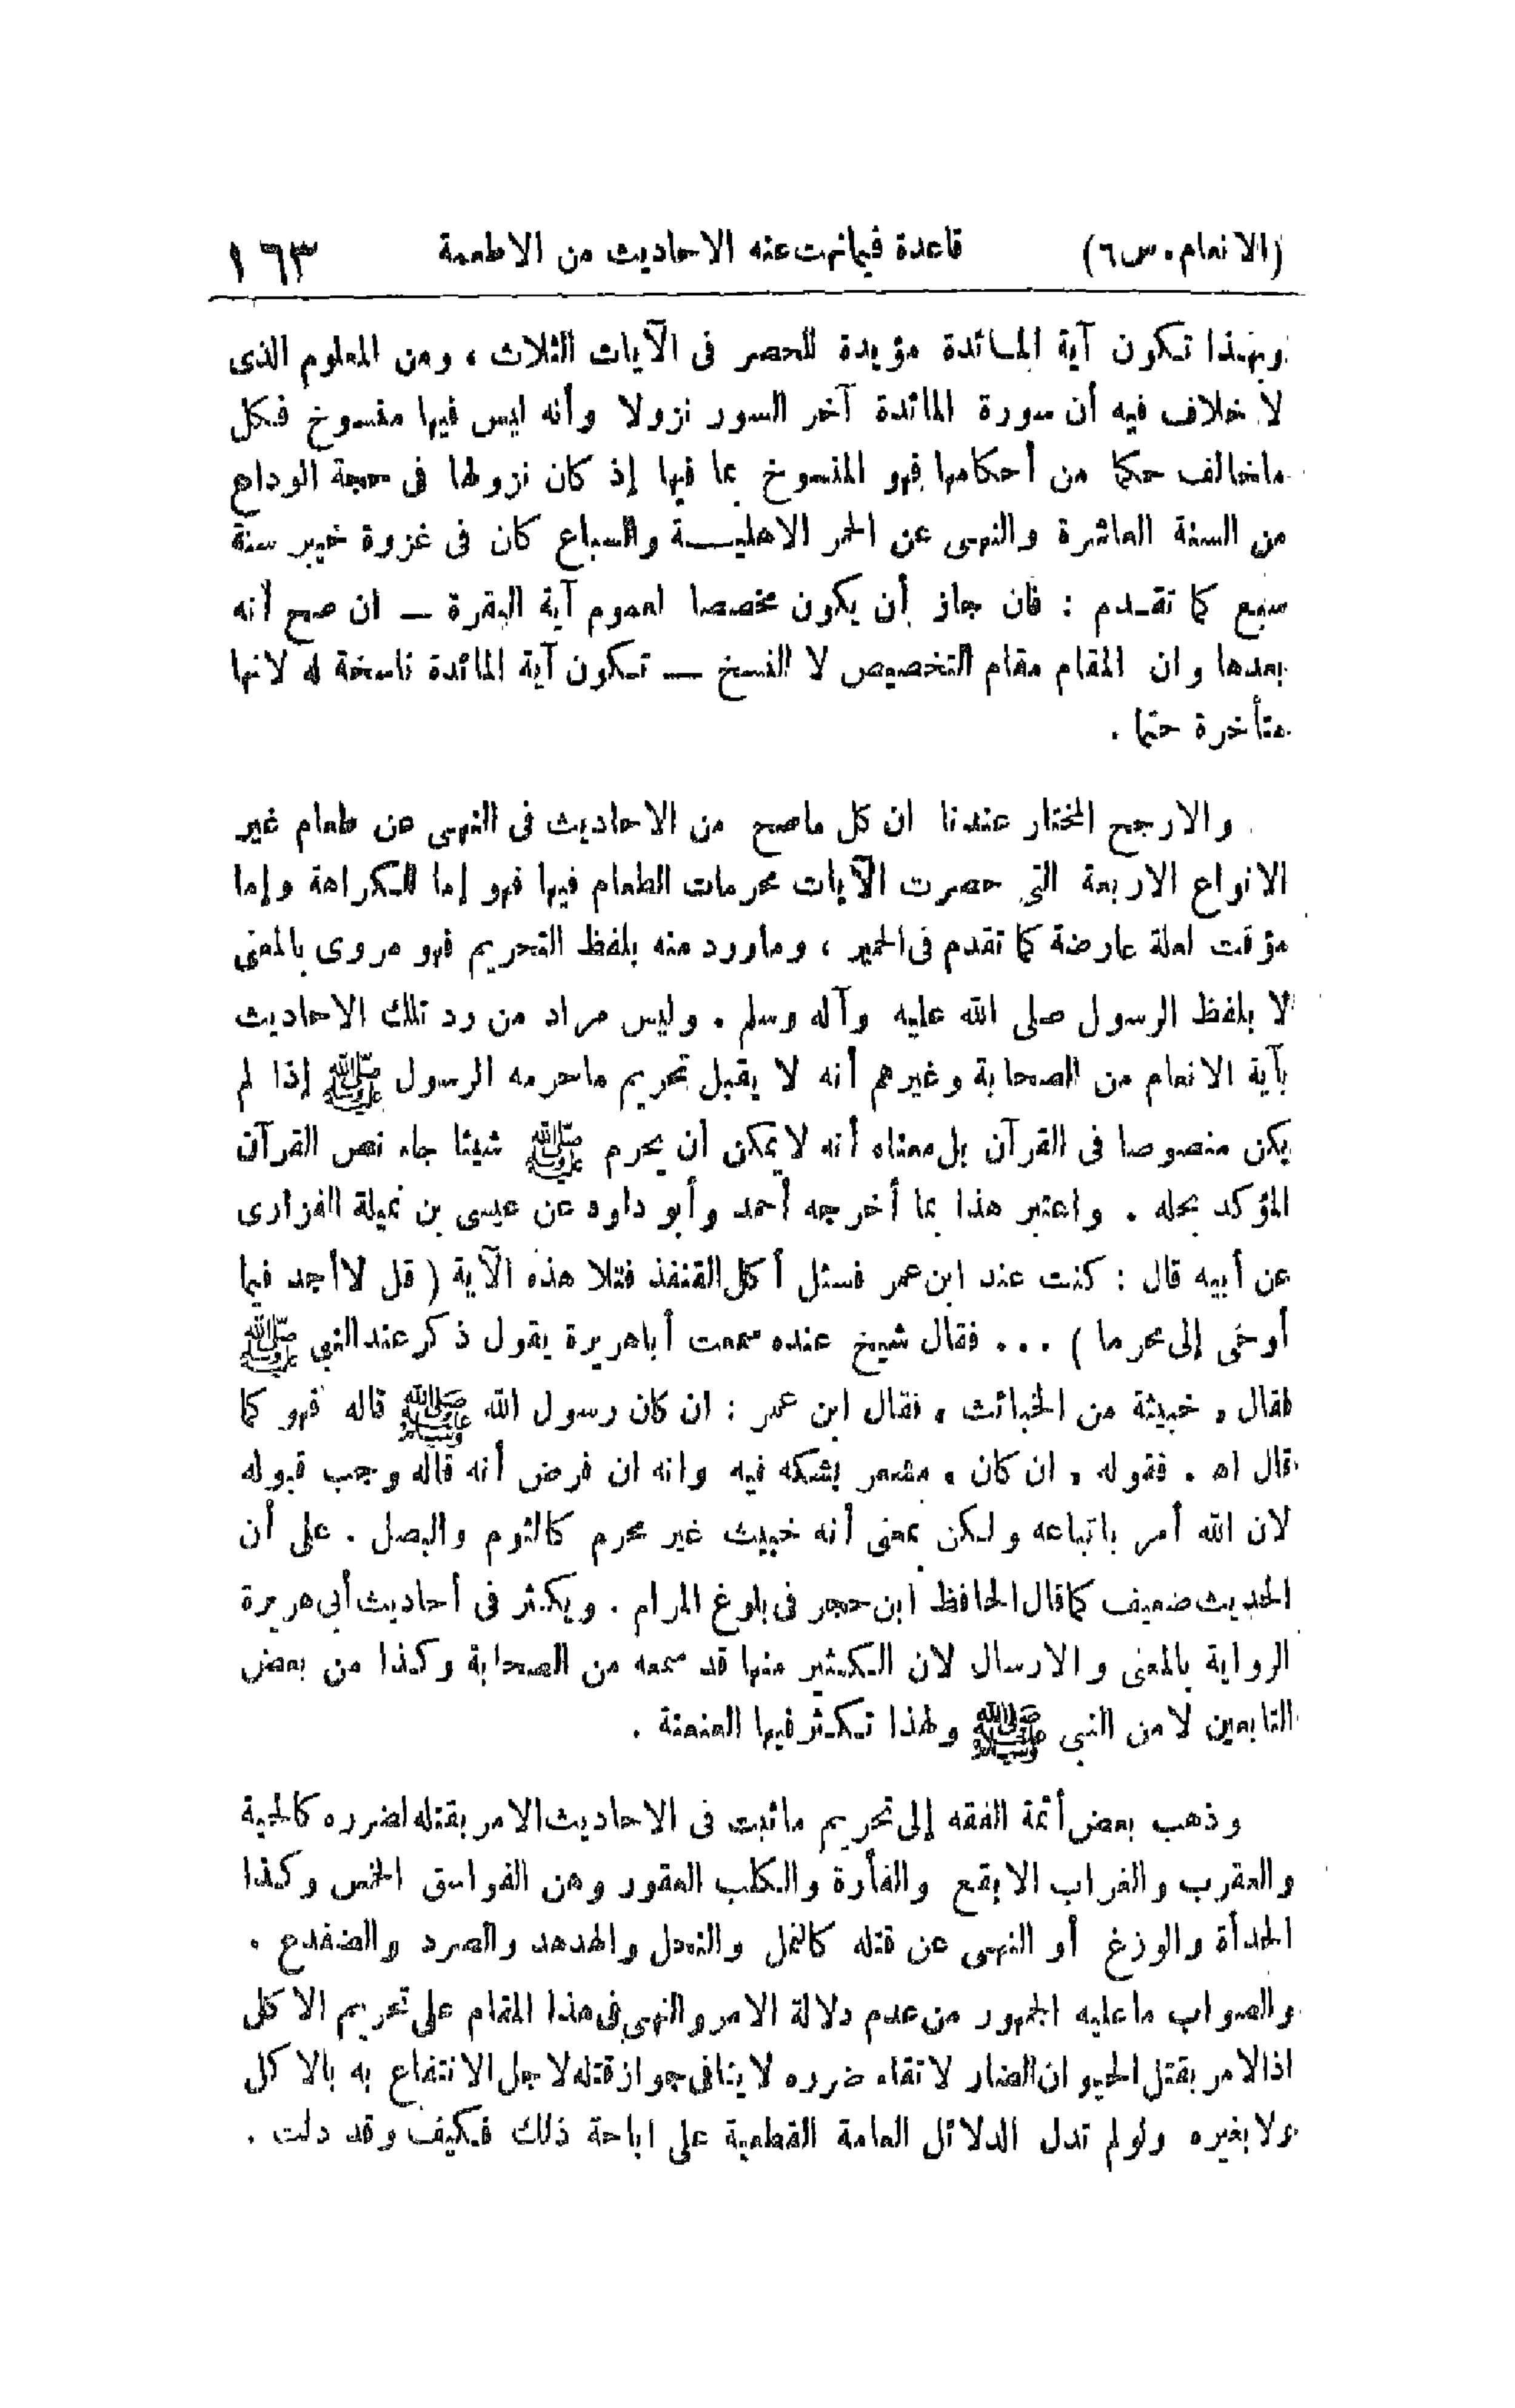 (الانعام . س ٦) قاعدة فيما نهت عنه الاحاديث من الاطعمة ١٦٣
وبهذا تكون آية المائدة مؤيدة للحصر فى الآيات الثلاث ، ومن المعلوم الذى
لا خلاف فيه أن سورة المائدة آخر السور نزولا وأنه ليس فيها منسوخ فكل
ماخالف حكما من أحكامها فهو المنسوخ بما فيها إذ كان نزولها فى حجة الوداع
من السنة العاشرة والنهى عن الحمر الاهليـــة والسباع كان فى غزوة خيبر سنة
سبع كما تقـدم : فان جاز أن يكون مخصصا لعموم آية البقرة – ان صح أنه
بعدها وان المقام مقام التخصيص لا النسخ – تكون آية المائدة ناسخة له لانها
متأخرة حتما .
والارجح المختار عندنا ان كل ماصح من الاحاديث فى النهى عن طعام غير
الانواع الاربعة التى حصرت الآيات محرمات الطعام فيها فهو إما للكراهة وإما
مؤقت لعلة عارضة كما تقدم فى الحمير ، وماورد منه بلفظ التحريم فهو مروى بالمعنى
لا بلفظ الرسول صلى الله عليه وآله وسلم . وليس مراد من رد تلك الاحاديث
بآية الانعام من الصحابة وغيرهم أنه لا يقبل تحريم ماحرمه الرسول ﷺ إذا لم
يكن منصوصا فى القرآن بل معناه أنه لا يمكن أن يحرم ﷺ شيئا جاء نص القرآن
المؤكد بحله . واعتبر هذا بما أخرجه أحمد وأبو داود عن عيسى بن نميلة الفزارى
عن أبيه قال : كنت عند ابن عمر فسئل أكل القنفذ فتلا هذه الآية ( قل لا أجد فيما
أوحى إلى محرما ) ... فقال شيخ عنده سمعت أباهريرة يقول ذكر عند النبى ﷺ
فقال « خبيثة من الخبائث » فقال ابن عمر : ان كان رسول الله ﷺ قاله فهو كما
قال اهـ . فقوله « ان كان » مشعر بشكه فيه وانه ان فرض أنه قاله وجب قبوله
لان الله أمر باتباعه ولكن بمعنى أنه خبيث غير محرم كالثوم والبصل . على أن
الحديث ضعيف كما قال الحافظ ابن حجر فى بلوغ المرام . ويكثر فى أحاديث أبى هريرة
الرواية بالمعنى والارسال لان الكثير منها قد سمعه من الصحابة وكذا من بعض
التابعين لا من النبى ﷺ ولهذا تكثر فيها العنعنة .
وذهب بعض أئمة الفقه إلى تحريم ماثبت فى الاحاديث الامر بقتله لضرره كالحية
والعقرب والغراب الابقع والفأرة والكلب العقور وهن الفواسق الخمس وكذا
الحدأة والوزغ أو النهى عن قتله كالنمل والنحل والهدهد والصرد والضفدع .
والصواب ماعليه الجمهور من عدم دلالة الامر والنهى فى هذا المقام على تحريم الاكل
اذ الامر بقتل الحيوان الضار لاتقاء ضرره لا ينافى جواز قتله لاجل الانتفاع به بالاكل
ولا بغيره ولو لم تدل الدلائل العامة القطعية على اباحة ذلك فكيف وقد دلت .